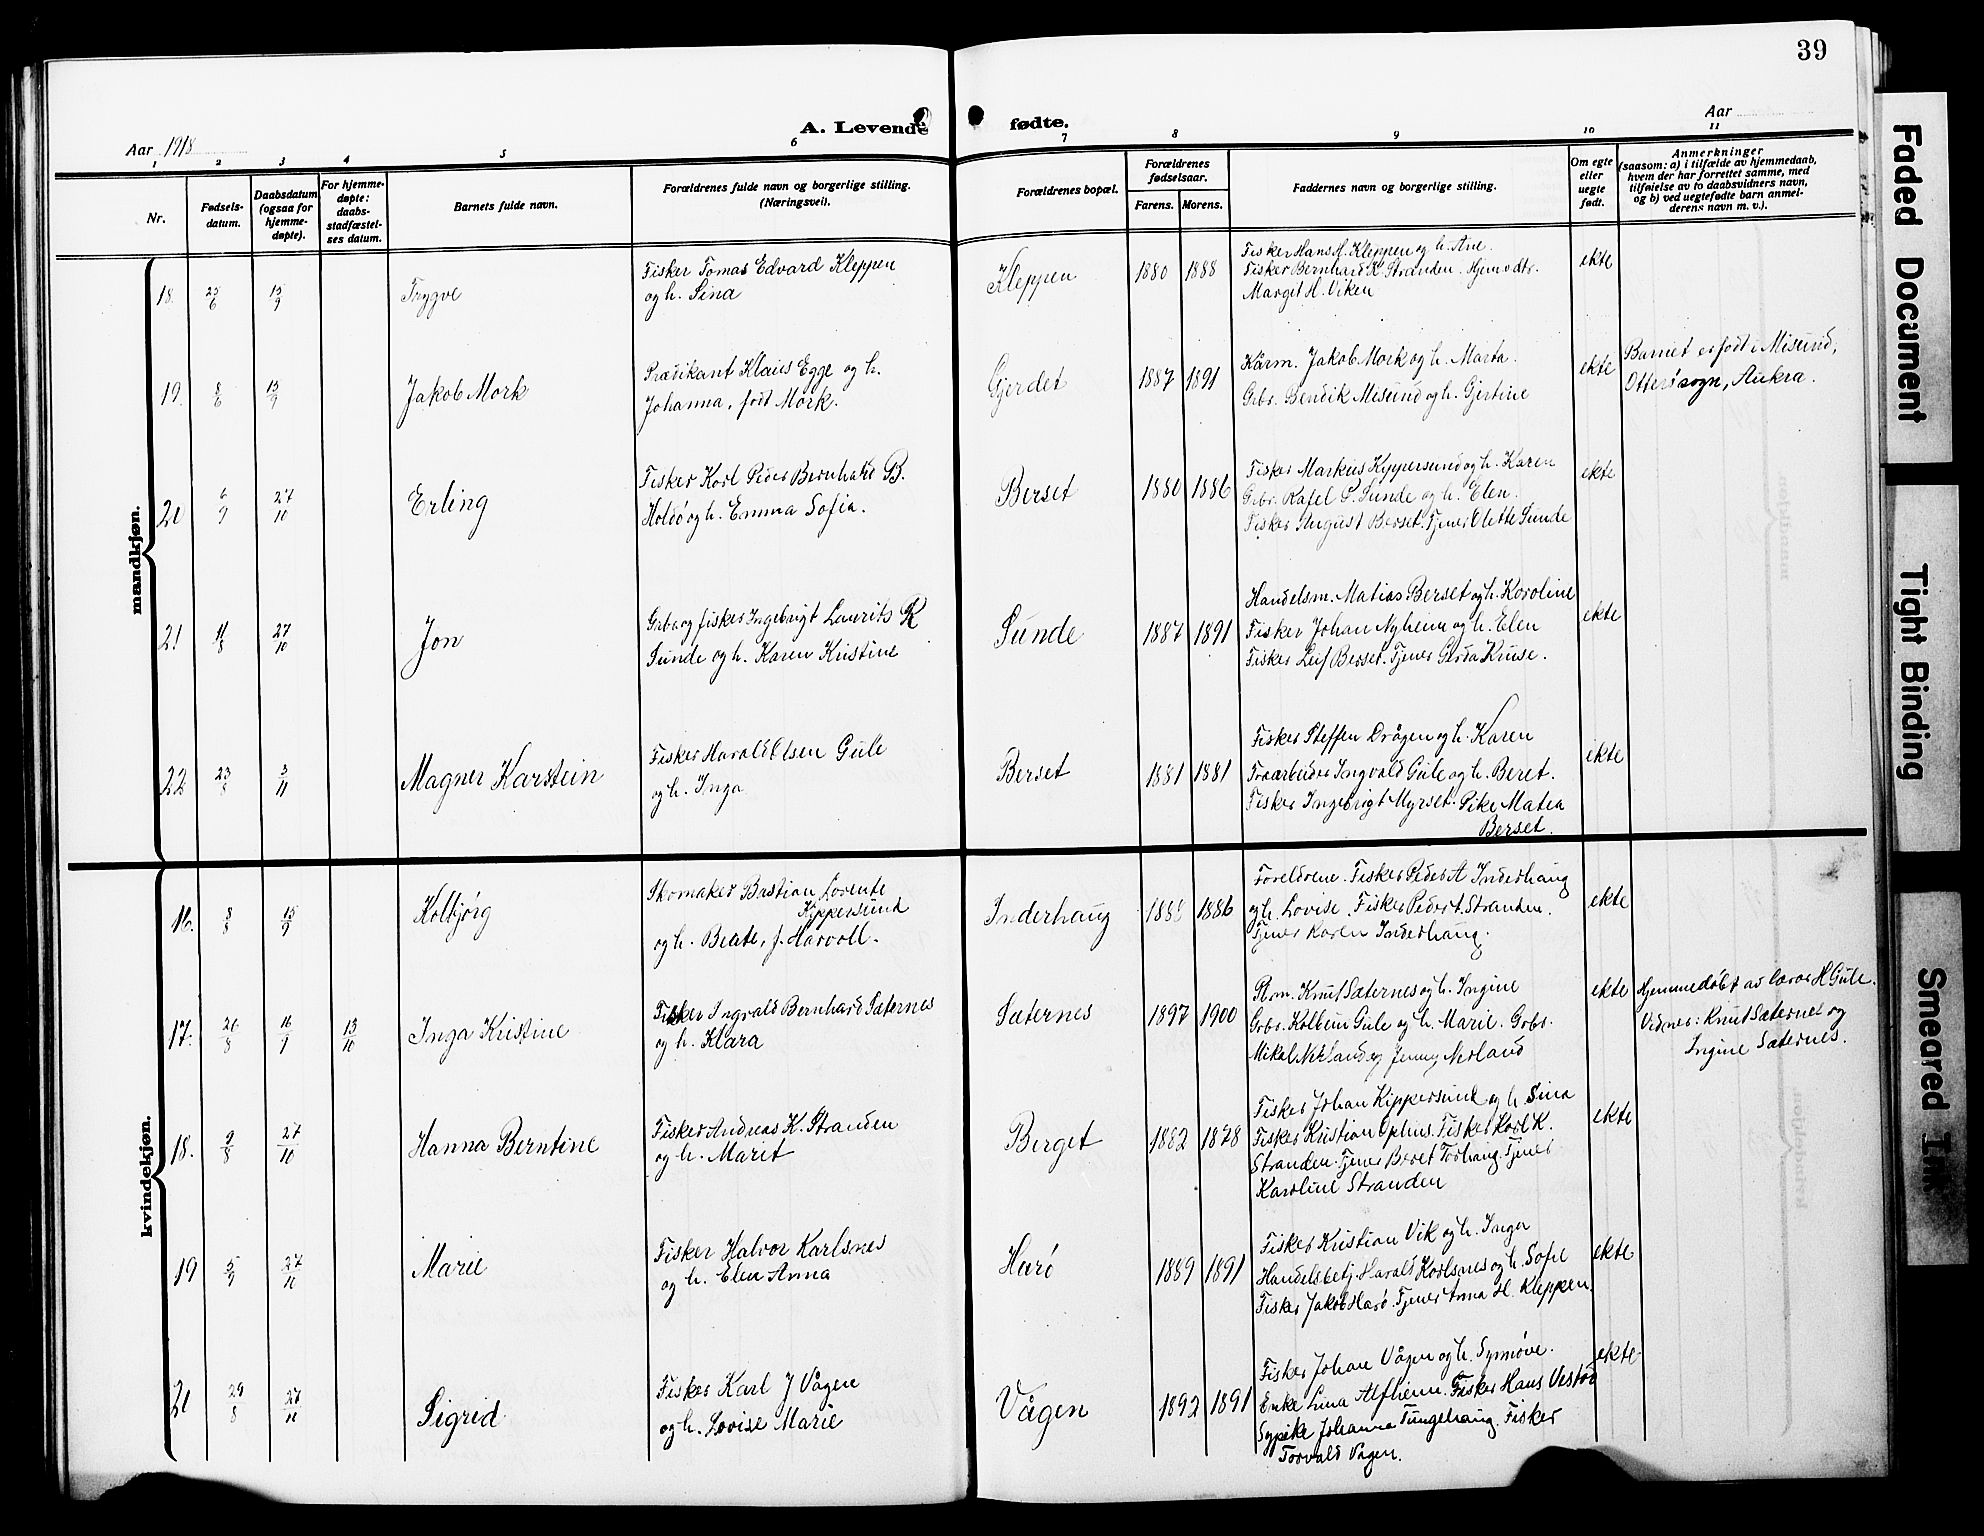 39
A. Levende fødte.
Aar 1918
Aar
1 2 3 4 5 6 7 8 9 10 11
Nr.
Fødsels-
datum.
Daabsdatum
(ogsaa for
hjemme-
døpte).
For hjemme-
døpte:
daabs-
stadfæstel-
ses datum.
Barnets fulde navn.
Forældrenes fulde navn og borgerlige stilling.
(Næringsvei).
Forældrenes bopæl.
Forældrenes
fødselsaar.
Farens. Morens.
Faddernes navn og borgerlige stilling.
Om egte
eller
uegte
født.
Anmerkninger
(saasom: a) i tilfælde av hjemmedaab,
hvem der har forrettet samme, med
tilføielse av to daabsvidners navn,
og b) ved uegtefødte barn anmel-
derens navn m. v.).
mandkjøn.
18. 25/6 15/9 Trygve
Fisker Tomas Edvard Kleppen
og h. Sina
Kleppen 1880 1888
Fisker Hans H. Kleppen og h. Ane.
Fisker Bernhard K. Stranden. Hjemvdtr.
Margit H. Viken
ekte
19. 8/6 15/9 Jakob Mork
Prædikant Klaus Egge og h.
Johanna, født Mork.
Gjerdet 1887 1891
Kårm. Jakob Mork og h. Marta.
Grbr. Bendik Misund og h. Gjertine
ekte
Barnet er født i Misund,
Otterö sogn, Aukra.
20 6/9 27/10 Erling
Fisker Karl Peder Bernhard B.
Holdö og h. Emma Sofia.
Berset 1880 1886
Fisker Markus Kyppersund og h. Karen
Grbr. Rafel P. Sunde og h. Elen.
Fisker August Berset. Tjener Olette Sunde
ekte
21 11/8 27/10 Jon
Grbr og fisker Ingebrigt Laurits R
Sunde og h. Karen Kristine
Sunde 1887 1891
Handelsm. Matias Berset og h. Karoline
Fisker Johan Nyheim og h. Elen
Fisker Leif Berset. Tjener Gerda Kruse.
ekte
22 23/8 3/11 Magner Karstein
Fisker Harald Olsen Gule
og h. Inga
Berset 1881 1881
Fisker Steffen Drågen og h. Karen
Træarbeider Ingvald Gule og h. Beret.
Fisker Ingebrigt Myrset. Pike Matea
Berset.
ekte
kvindekjøn.
16. 8/8 15/9 Kolbjørg
Skomaker Bastian Lorents
Kippersund
og h. Beate, f. Harvoll.
Inderhaug 1886
Foreldrene. Fisker Peder A Inderhaug
og h. Lovise. Fisker Peder t. Stranden.
Tjener Karen Inderhaug.
ekte
17. 26/8 16/9 13/10 Inga Kristine
Fisker Ingvald Bernhard Sæternes
og h. Klara
Sæternes 1897 1900
Knut Sæternes og h. Ingine
Grbr. Kolbein Gule og h. Marie. Grbr.
Mikal Nerland og Jenny Nerland
ekte
Hjemmedøbt av lærer H Gule.
Vidner: Knut Sæternes og
Ingine Sæternes.
18. 9/8 27/10 Hanna Berntine
Fisker Andreas K. Stranden
og h. Marit
Berget 1882 1878
Fisker Johan Kippersund og h Sina
Fisker Kristian Ophus. Fisker Karl K.
Stranden. Tjener Beret Torhaug. Tjener
Karoline Stranden
ekte
19 5/9 27/10 Marie
Fisker Halvor Karlsnes
og h. Elen Anna
Harö 1889 1891
Fisker Kristian Vik og h. Inga
Handelsbetj. Harald Karlsnes og h. Sofie
Fisker Jakob Harö. Tjener Anna H. Kleppen.
ekte
20 29/8 27/10 Sigrid
Fisker Karl J Vågen
og h. Lovise Marie
Vågen 1892 1891
Fisker Johan Vågen og h. Synnöve.
Enke Lina Alfheim. Fisker Hans Vestad
Sypike Johanna Tungehaug. Fisker
Torvald Vågen.
ekte
Faded Document
Tight Binding
Smeared Ink